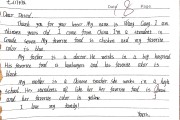 Dear David,
Thank you for you knew. My name is Wang Gang. I am
thirteen years old. I come from China. I'm a student in
Grade Seven. My favorite food is chicken and my favorite
color is blue.
My father is a doctor. He works in a big hospital
His favorite food is hamburgers and his favorite color is
black.
My mother is a Chinese teacher. She works in a high
school. Her students all like her. Her favorite food is
and her favorite color is yellow.
I love my family!
Yours,